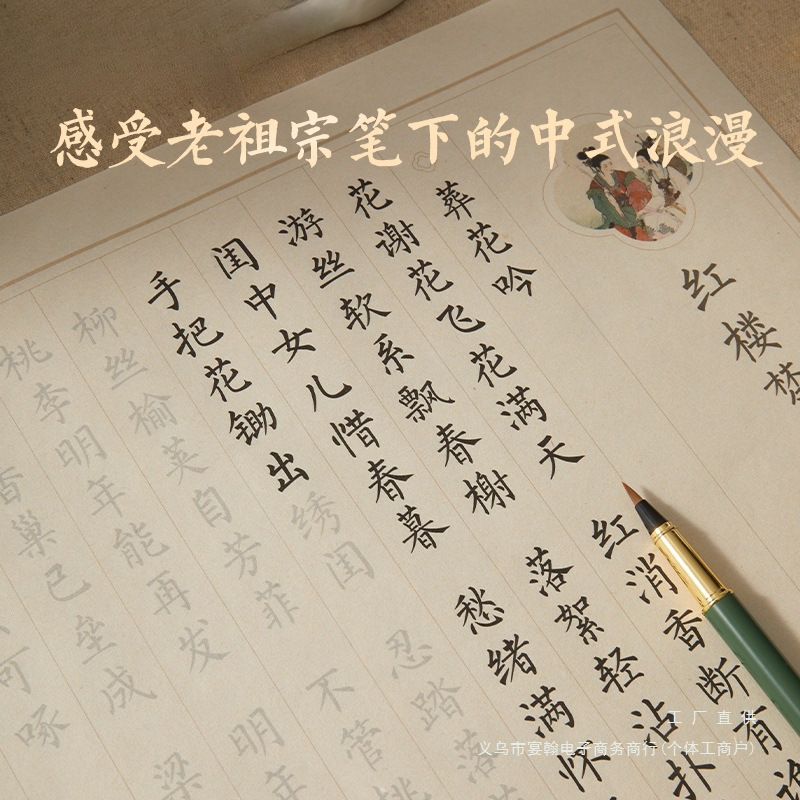 感受老祖宗笔下的中式浪漫
红楼梦
葬花吟
花谢花飞花满天 红消香断有谁
游丝软系飘春榭 落絮轻沾扑
闺中女儿惜春暮 愁绪满怀
手把花锄出绣闺 忍踏落
柳丝榆荚自芳菲 不管桃
桃李明年能再发 明年
香巢已垒成 梁
可啄
工厂直供
义乌市宴翰电子商务商行(个体工商户)